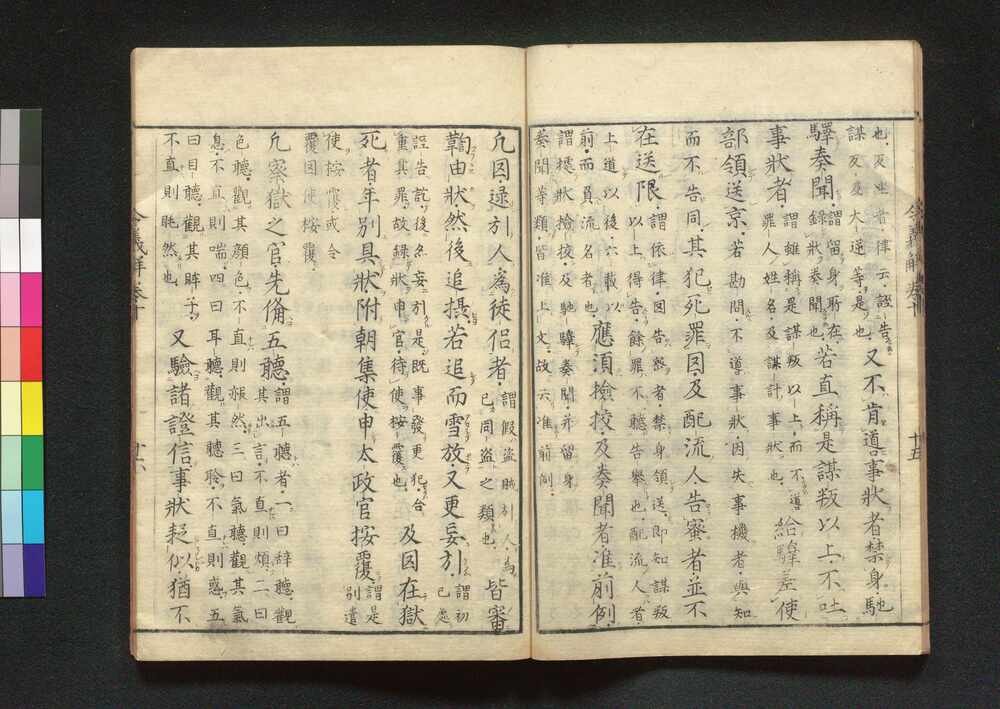 也、及出者、律云、誣告
謀反及大逆等是也
又不肯道事狀者禁身馳
驛奏聞
謂留身所在
錄狀奏聞也
若直稱是謀叛以上不吐
事狀者
謂雖稱是謀叛以上而不噵
罪人姓名及謀計事狀也
給驛差使
部領送京若勘問不道事狀因失事機者與知
而不告同其犯死罪囚及配流人告密者並不
在送限
謂依律囚告密者禁身領送即知謀叛
以上得告餘罪不聽告擧也配流人者
上道以後六載以
前而員流名者也
應須撿挍及奏聞者准前例
謂據狀撿挍及馳驛奏聞并留身
奏聞等類皆准上文故云准前例
令義解卷十
廿五
凡囚逮引人為徒侶者
謂假盜賊引人為
已同盜之類也
皆審
鞫由狀然後追攝若追而雪放又更妄引
謂初
已處
誣告訖後亦妄引是既事發更犯合
重其罪故錄狀申官待使按覆也
及囚在獄
死者年別具狀附朝集使申太政官按覆
謂是
別遣
使按覆或令
覆囚使按覆
凡察獄之官先備五聽
謂五聽者一曰辭聽觀
其出言不直則煩二曰
色聽觀其顏色不直則赧然三曰氣聽觀其氣
息不直則喘四曰耳聽觀其聽聆不直則惑五
曰目聽觀其眸子
不直則眊然也
又驗諸證信事狀疑似猶不
令義解卷十
廿六